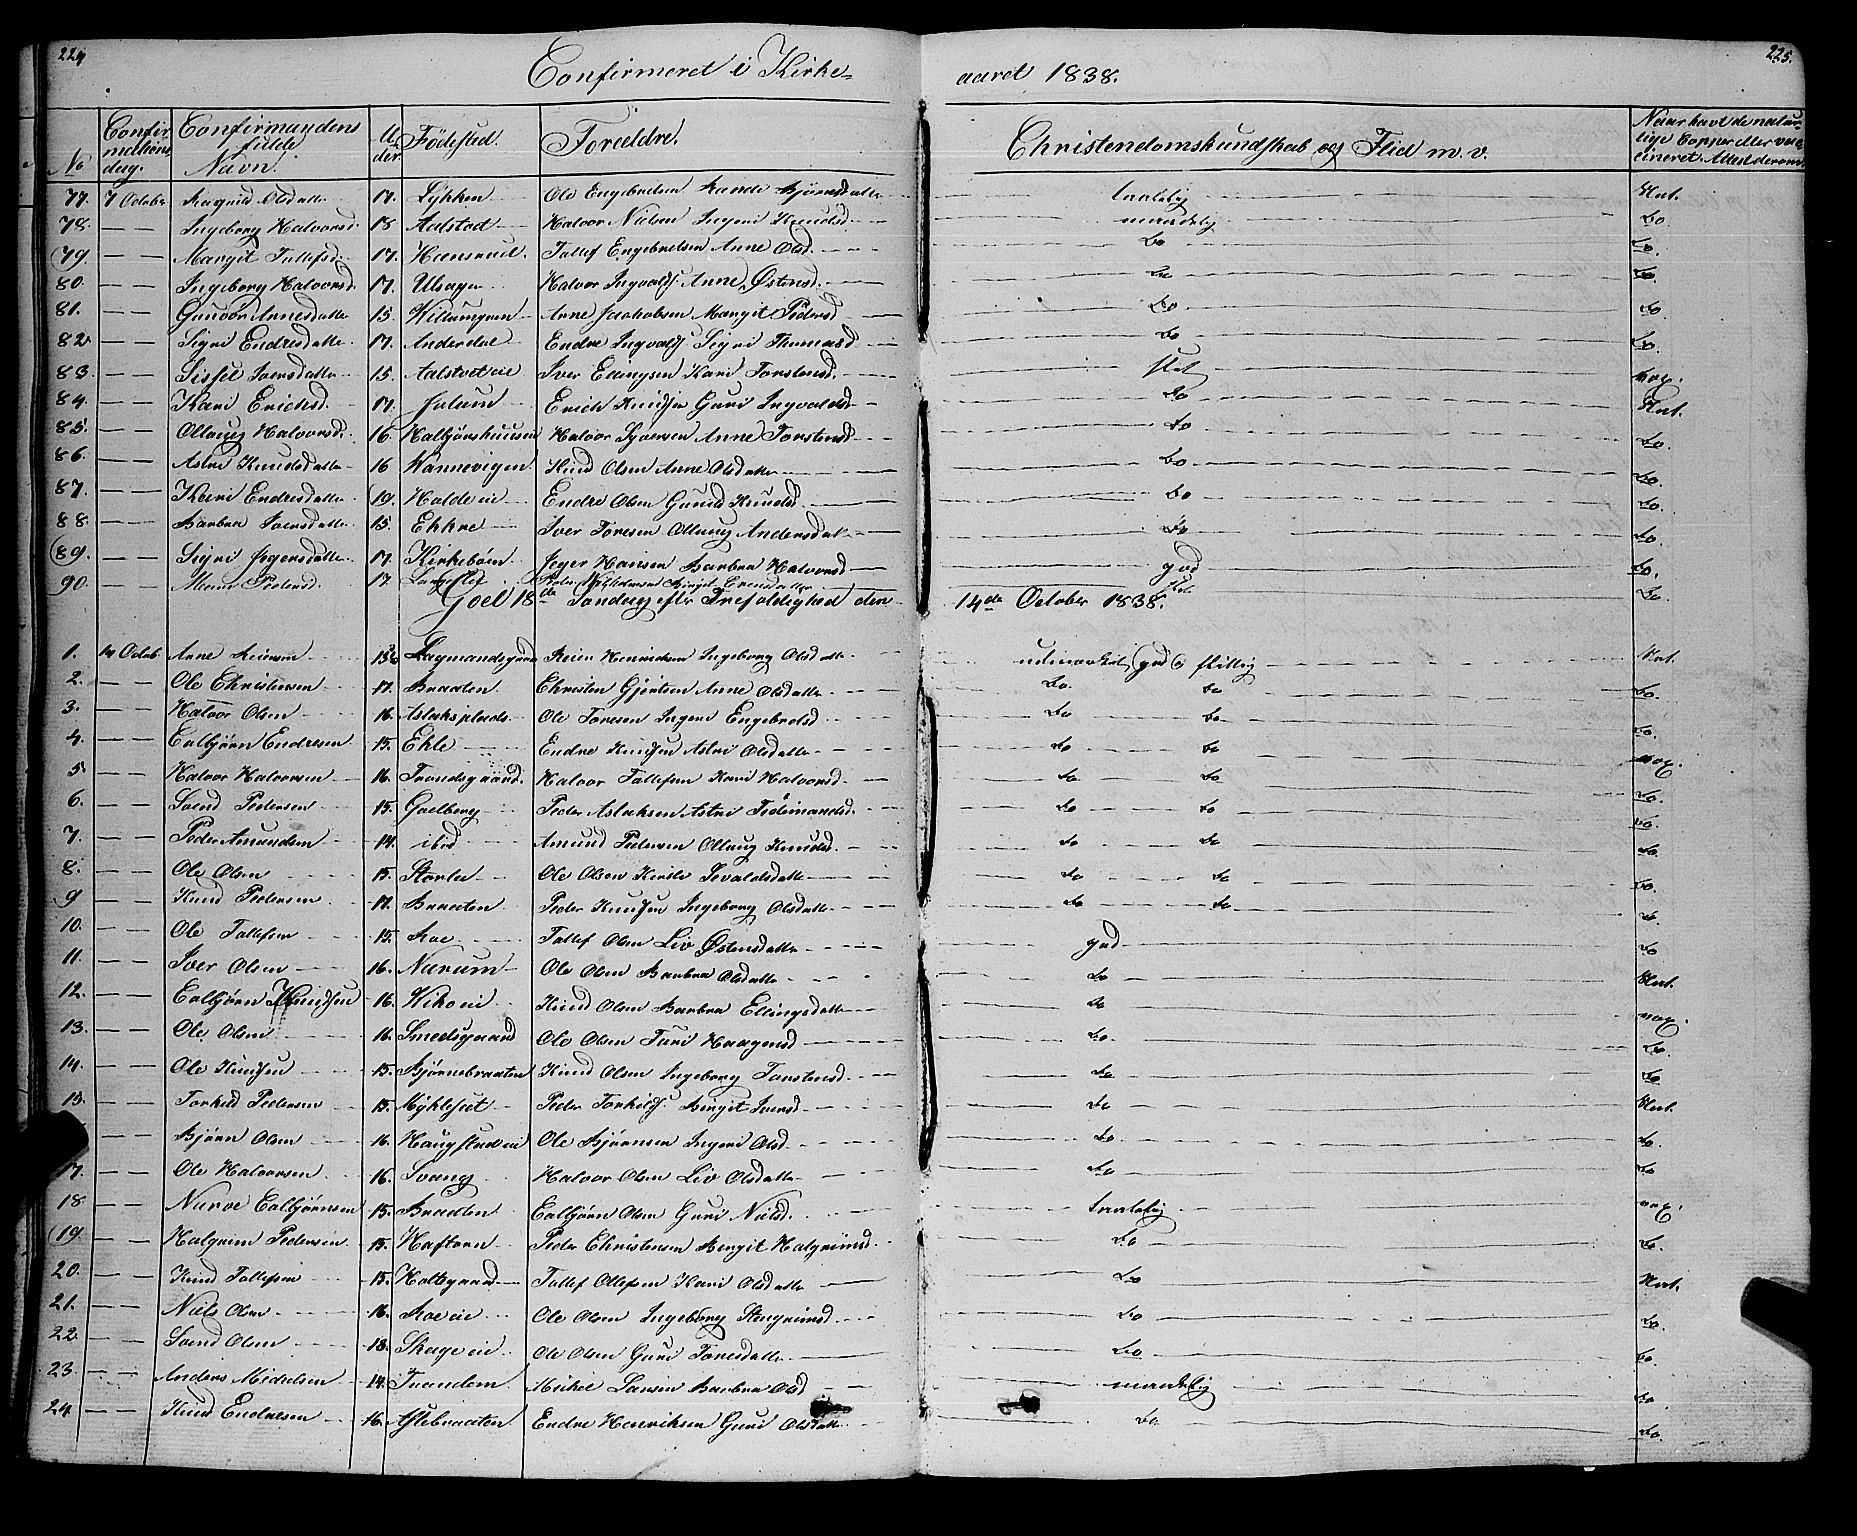 224
225.
Confirmeret i Kirke- aaret 1838.
No Confirmations dag. Confirmandens fulde Navn. Alder Födested. Foreldre. Christendomskundskab og Flid m. v. Naar havt de naturlige Copper eller vaccineret. Attest derom.
77. 7 October Ragnild Olsdatter 17. Lÿkken Ole Engebretsen Rande Bjørnsdatter taalelig Nat.
78. — — Ingeborg Halvorsd. 18 Aalstad Halvor Nielsen Ingeri Knudsd. maadelig do.
79. — — Margit Tollefsd. 17. Tollef Engebretsen Anne Olsd. do do.
80. — — Ingeborg Halvorsd. 17. Ulsager Halvor Ingvalds. Anne Østensd. do do.
81. — — Gunvor Arnesdatter 15. Arne Jacobsen Margit Pedersd. do do.
82. — — Sigri Endresdatter 17. Endre Ingvalds. Sigri Thomasd. do do.
83. — — Sissil Iversdatter 15. Aalstadeie Iver Ellingsen Kari Torstensd. slet vax.
84. — — Kari Erichsd. 17. Erich Knudsen Guri Ingvaldsd. do Nat.
85. — — Ollaug Halvorsd. 16. Halbjørshuusen Halvor Syversen Anne Torstensd. do do.
86. — — Astri Knudsdatter 16 Knud Olsen Anne Olsdatter do do.
87. — — Kari Endresdatter 19. Holdeeie Endre Olsen Gunild Knudsd. do do.
88. — — Barbra Iversdatter 15. Ekkre Iver Toresen Ollaug Andersdat. do do.
89. — — Sigri Jegersdatter 17. Kirkebøen Jeger Hansen Barbra Halvorsd. god do.
90. — — Pedersd. 17. Birgit do.
Goel 18de Søndag efter Trefoldighed den 14de October 1838.
1. 14 Octob. Anne Reiersen 15½ Lagmandsgaard Reier Henriksen Ingeborg Olsdatter udmærket god og flittig Nat.
2. — — Ole Christensen 17. Braaten Christen Gjertsen Anne Olsdatter do do do.
3. — — Halvor Olsen 16. Aslaksplads Ole Toresen Ingeri Engebretsd. do do do.
4. — — Embjørn Endresen 15. Ekle Endre Knudsen Astri Olsdatter do do vax.
5 — — Halvor Halvorsen 16. Trondsgaard. Halvor Tollefsen Kari Halvorsd. do do do.
6. — — Svend Pedersen 15. Goelberg Peder Aslaksen Astri Tidemandsd. do do do.
7. — — Peder Amundsen 14. ibid Amund Pedersen Ollaug Knudsd. do do do.
8. — — Ole Olsen 15. Storlie Ole Olsen Kirsti Sevaldsdatter do do do.
9 — — Knud Pedersen 17. Braaten Peder Knudsen Ingeborg Olsdatter do do do
10. — — Ole Tollefsen 15. Roe Tollef Olsen Liv Østensdatter god do
11. — — Iver Olsen 16. Narum Ole Olsen Barbra Olsdatter do Nat.
12. — — Embjørn Knudsen 16. Wikoeie Knud Olsen Barbra Ellingsdatter do vax.
13. — — Ole Olsen 16. Smedsgaard Ole Olsen Turi Haagensd do do.
14. — — Ole Knudsen 15. Bjørnebraaten Knud Olsen Ingeborg Torstensd. do do
15. — — Torkild Pedersen 15. Mÿkleset Peder Torkilds. Birgit Iversd. do Nat.
— Bjørn Olsen 16. Haugstadeie Ole Bjørnsen Ingeri Olsd. do do.
17. — — Ole Halvorsen 16. Svang Halvor Olsen Liv Olsdatter do do
18. — — Narve Embjørnsen 15. Braaten Embjørn Olsen Guri Nielsd. taalelig vax.
19. — — Halgrim Pedersen 15. Haftorn Peder Christensen Bergit Halgrimsd. do do.
20. — — Knud Tollefsen 15. Holtegaard Tollef Ollefsen Kari Olsdatter do Nat.
21. — — Niels Olsen 16. Roeeie Ole Olsen Ingeborg Stengrimsd. do do.
22. — — Svend Olsen 18. Skageeie Ole Olsen Guri Toresdatter do do.
23. — — Anders Mickelsen 14. Truandem Mickel Larsen Barbra Olsd maadelig do
24. — — Knud Endresen 16. Aslebraaten Endre Henriksen Guri Olsdatter do do.